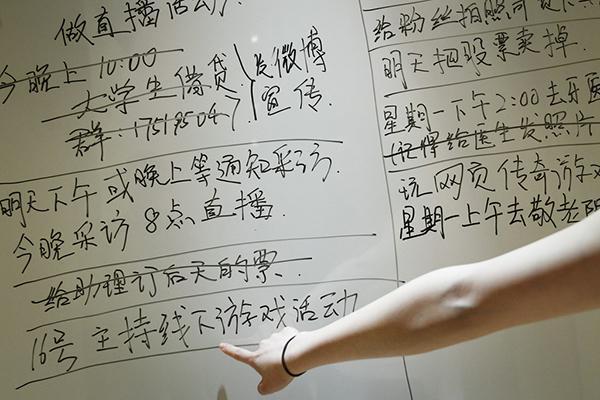 做直播活动
今晚上10:00
大学生借贷
群:175195047
发微博
宣传.
明天下午或晚上等通知采访.
今晚采访8点直播.
给助理订后天的票.
16号主持线下游戏活动
给粉丝拍照
明天把股票卖掉.
星期一下午2:00去牙医
(记得给医生发照片
玩网页传奇游戏
星期一上午去敬老院